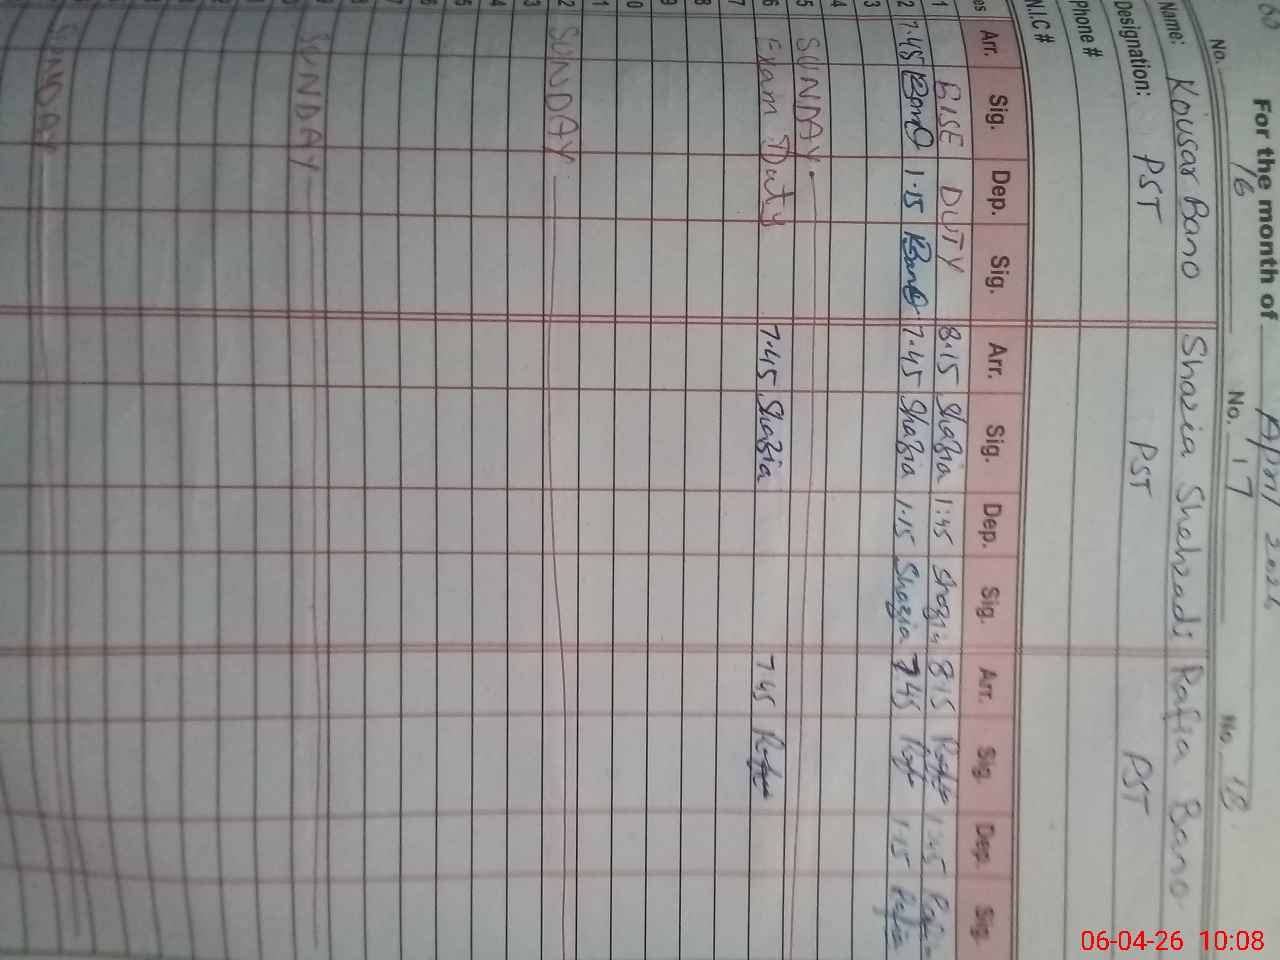 For the month of April 2026
No. 16 No. 17 No. 18
Name: Kousar Bano Shazia Shehzadi Rafia Bano
Designation: PST PST PST
Phone #
N.I.C #
es Arr. Sig. Dep. Sig. Arr. Sig. Dep. Sig. Arr. Sig. Dep. Sig.
1 BISE DUTY 8.15 Shazia 1:45 Shazia 8.15 Rafia 1:45 Rafia
2 7.45 KBano 1.15 KBano 7.45 Shazia 1.15 Shazia 7.45 Rafia 1.15 Rafia
3
4
5 SUNDAY.
6 Exam Duty 7.45 Shazia 7.45 Rafia
7
8
9
0
1
2 SUNDAY
3
4
5
6
7
SUNDAY
SUNDAY
06-04-26 10:08